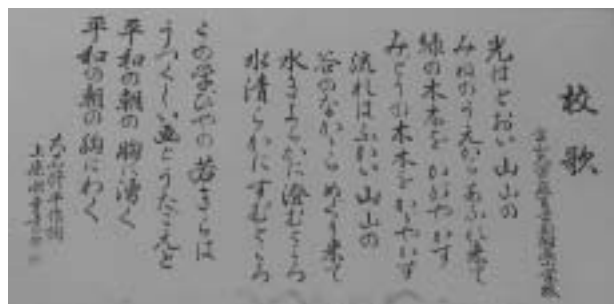 校歌
光はとおい山山の
みねのうえからあふれ来て
緑の木木をかがやかす
みどりの木木をかがやかす
流れはふかい山山の
谷のなかからめぐり来て
水きよらかに澄むところ
水清らかにすむところ
この学びやの若きらは
うつくしい
とうたごえと
平和の朝の胸に湧く
平和の朝の胸にわく